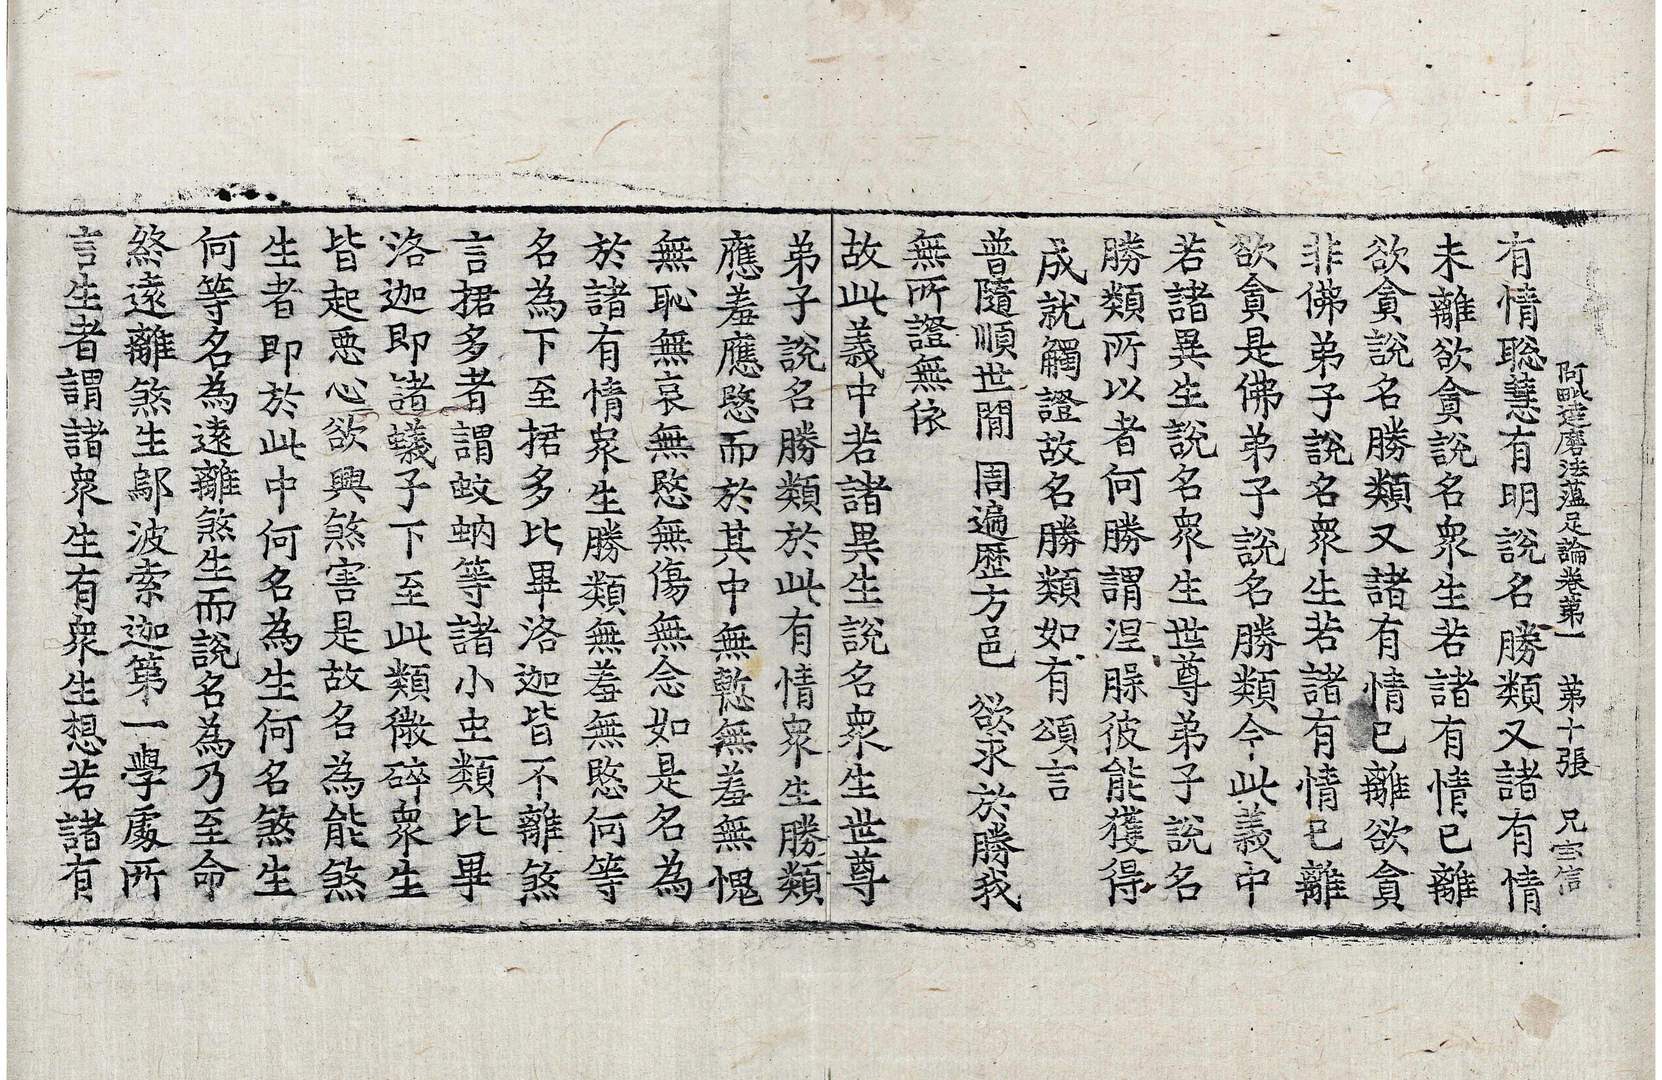 阿毗達磨法蘊足論卷第一　第十張　兄宗信
有情聡慧有明說名勝類又諸有情
未離欲貪說名衆生若諸有情已離
欲貪說名勝類又諸有情已離欲貪
非佛弟子說名衆生若諸有情已離
欲貪是佛弟子說名勝類今此義中
若諸異生說名衆生世尊弟子說名
勝類所以者何勝謂涅槃彼能獲得
成就觸證故名勝類如有頌言
普隨順世閒　周遍歷方邑　欲求於勝我
無所證無依
故此義中若諸異生說名衆生世尊
弟子說名勝類於此有情衆生勝類
應羞應愍而於其中無慙無羞無愧
無恥無哀無愍無傷無念如是名為
於諸有情衆生勝類無羞無愍何等
名為下至捃多比畢洛迦皆不離煞
言捃多者謂蚊蚋等諸小虫類比畢
洛迦即諸蟻子下至此類微碎衆生
皆起惡心欲興煞害是故名為能煞
生者即於此中何名為生何名煞生
何等名為遠離煞生而說名為乃至命
終遠離煞生鄔波索迦第一學處所
言生者謂諸衆生有衆生想若諸有